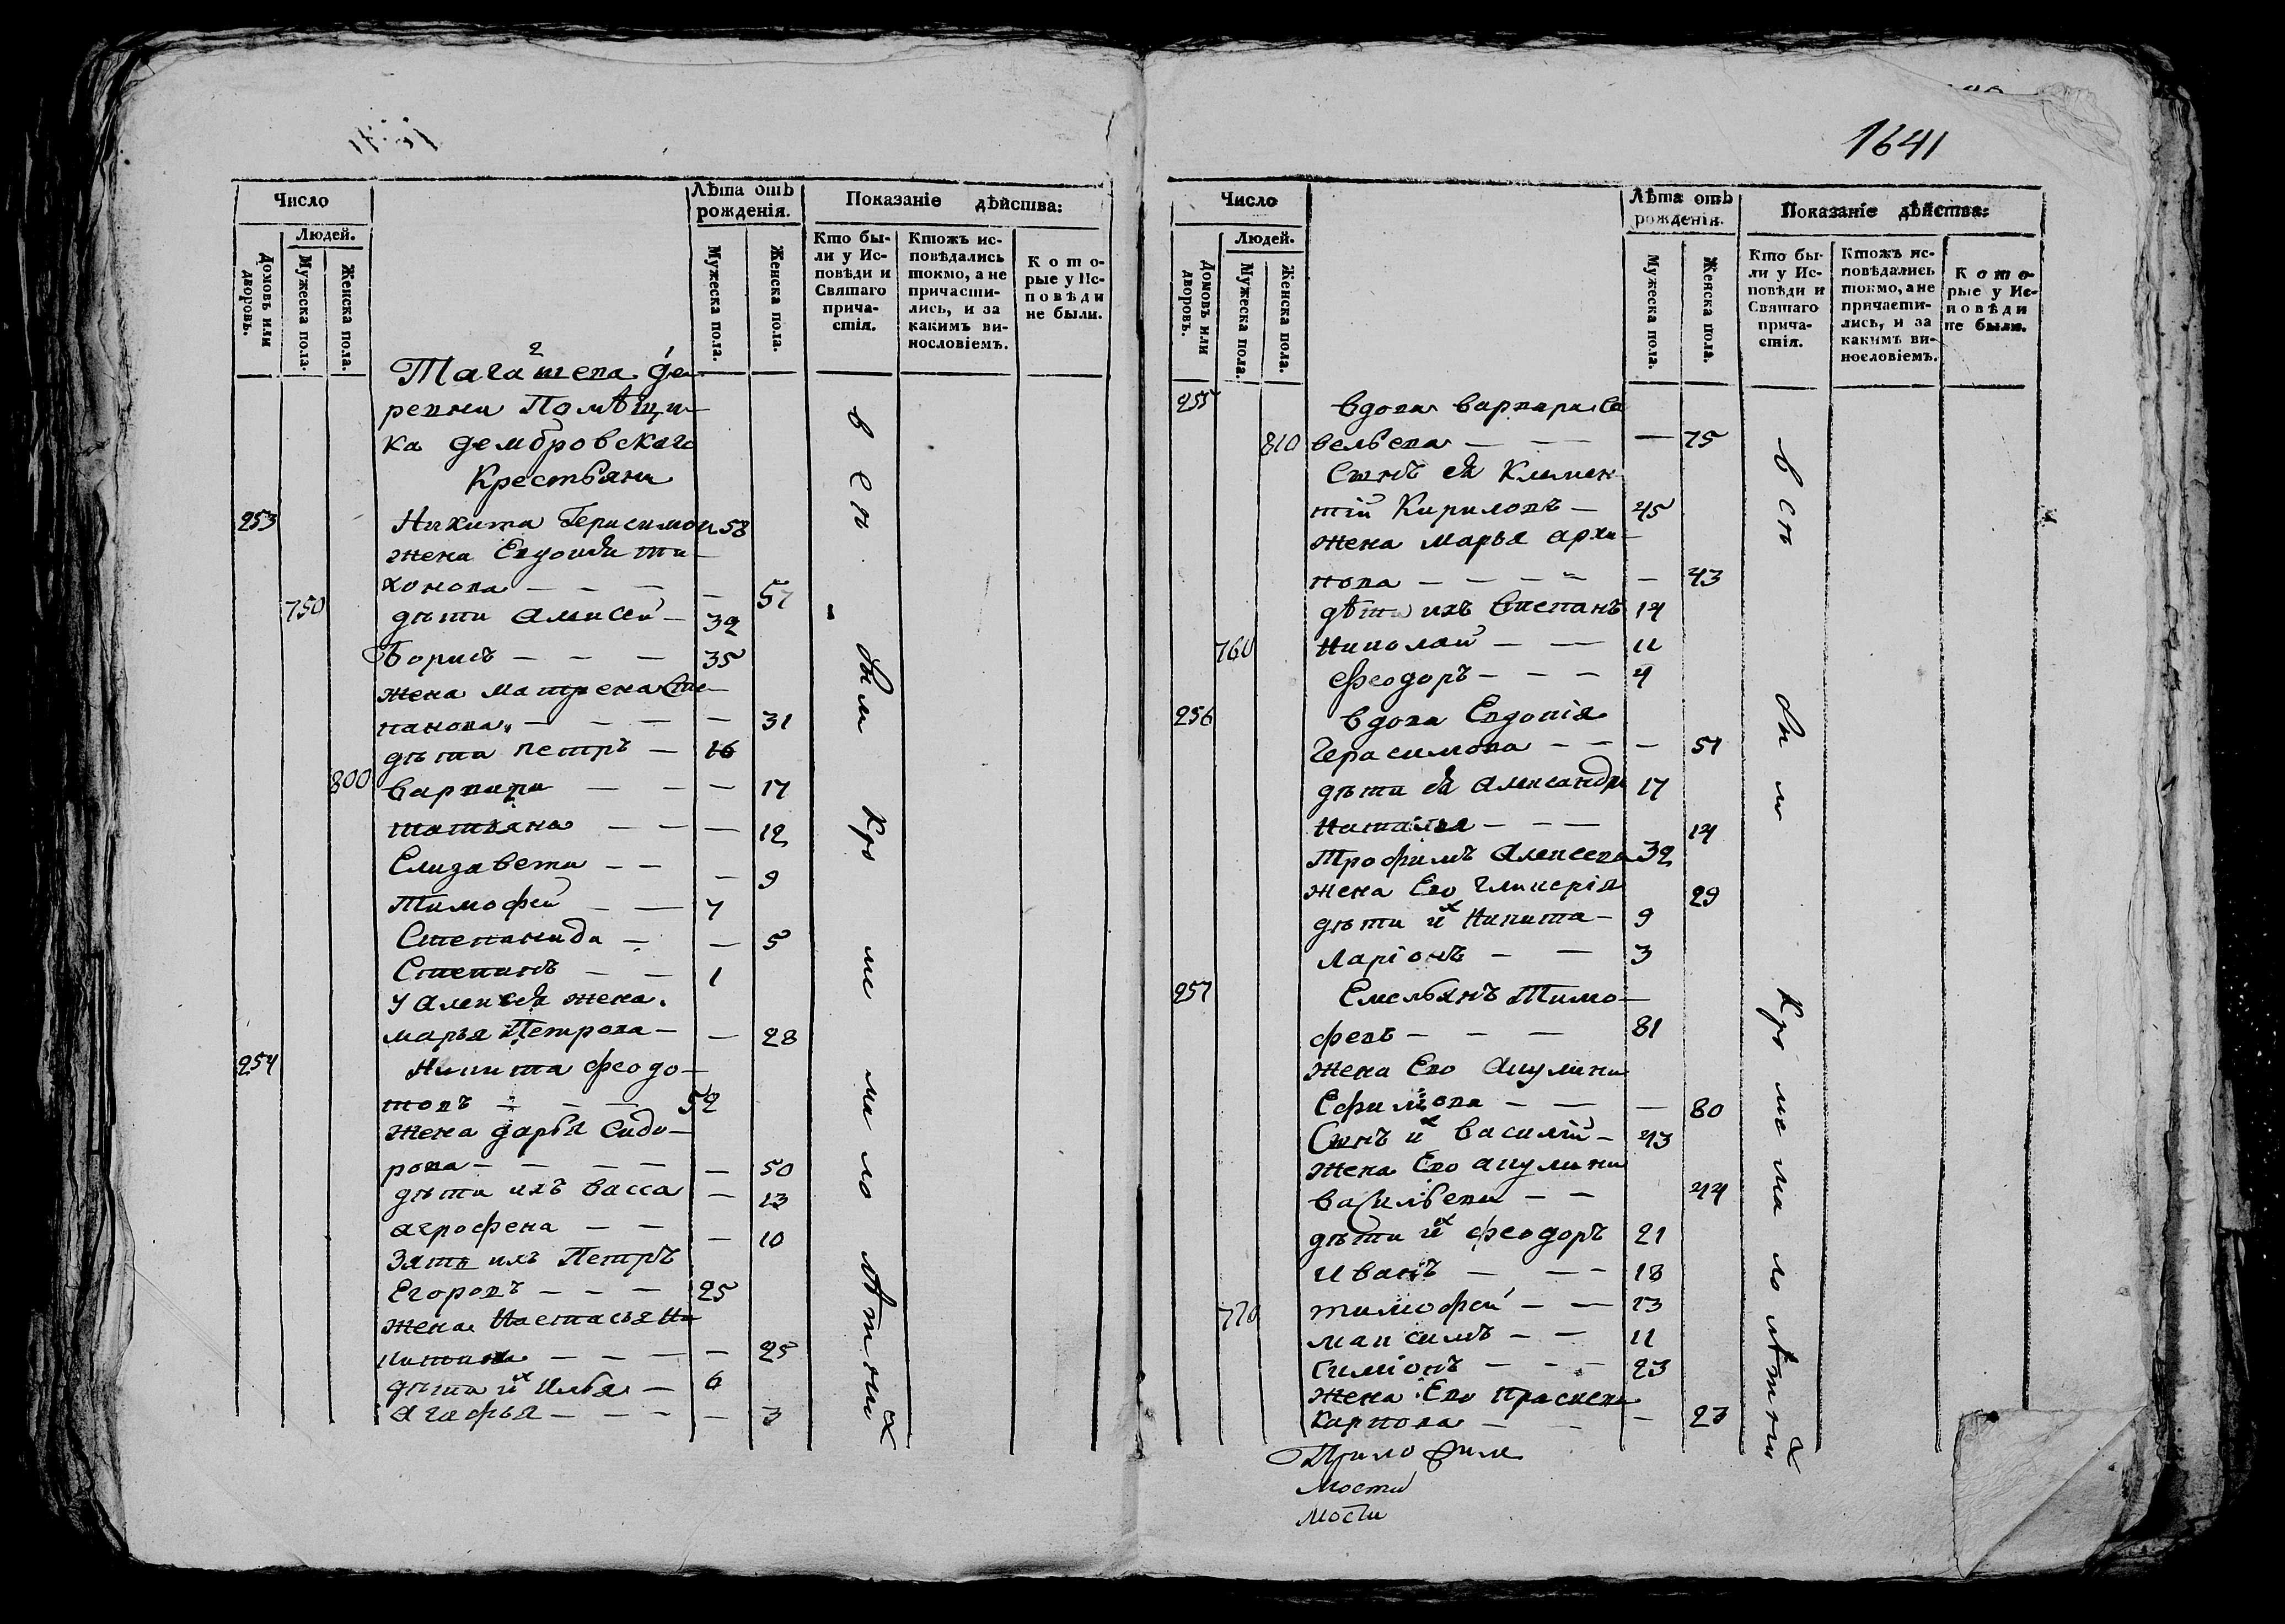 1641
Число
Лѣта отъ рожденія.
Показаніе дѣйства:
Людей.
Домовъ или дворовъ.
Мужеска пола.
Женска пола.
Мужеска пола.
Женска пола.
Кто были у Исповѣди и Святаго причастія.
Ктожъ исповѣдались токмо, а не причастились, и за какимъ винословіемъ.
Которые у Исповѣди не были.
ревни Помѣщи-
ка Дембровскаго
Крестьяни
253 Никита Герасимов 58
жена Евдокія ти-
хонова — — — — 57
750 дѣти Алексей — 32
Борисъ — — — 35
жена матрена Сте-
панова — — — — 31
дѣти Петръ — 16
800 варвара — — — 17
татьяна — — — 12
Елизавета — — — 9
Тимофей — — 7
Степанида — — 5
Степанъ — — 1
У Алексея жена
марья Петрова — — 28
254 Никита феодо-
товъ — — — 52
жена дарья Сидо-
рова — — — — — 50
дѣти ихъ васса — 13
агрофена — — — 10
Зять ихъ Петръ
Егоровъ — — — 25
жена Настасья Ни-
китина — — — — 25
дѣти их Илья — 6
агафья — — — — 3
всѣ были кроме малолѣтних
Число
Лѣта отъ рожденія.
Показаніе дѣйства:
Людей.
Домовъ или дворовъ.
Мужеска пола.
Женска пола.
Мужеска пола.
Женска пола.
Кто были у Исповѣди и Святаго причастія.
Ктожъ исповѣдались токмо, а не причастились, и за какимъ винословіемъ.
Которые у Исповѣди не были.
255 вдова варвара Са
810 вельева — — — — 75
Сынъ ея Климен-
тій Кириловъ — 45
жена марья архи-
пова — — — — — 43
дѣти ихъ Степанъ 14
760 Николай — — 11
феодоръ — — — 4
256 вдова Евдокія
Герасимова — — — 51
дѣти ея Александръ 17
Наталья — — — 14
Трофимъ Алексеев 32
жена Его Гликерія 29
дѣти их Никита — 9
Ларіонъ — — 3
257 Емельянъ Тимо-
февъ — — — 81
жена Его Акулина
Ефимова — — — 80
Сынъ их Василій — 43
жена Его акулина
васильева — — 44
дѣти их феодоръ 21
Иванъ — — — 18
770 тимофей — — 13
максимъ — — 11
Симіонъ — — — 23
жена Его Прасковья
Карпова — — — 23
всѣ были кроме малолѣтних